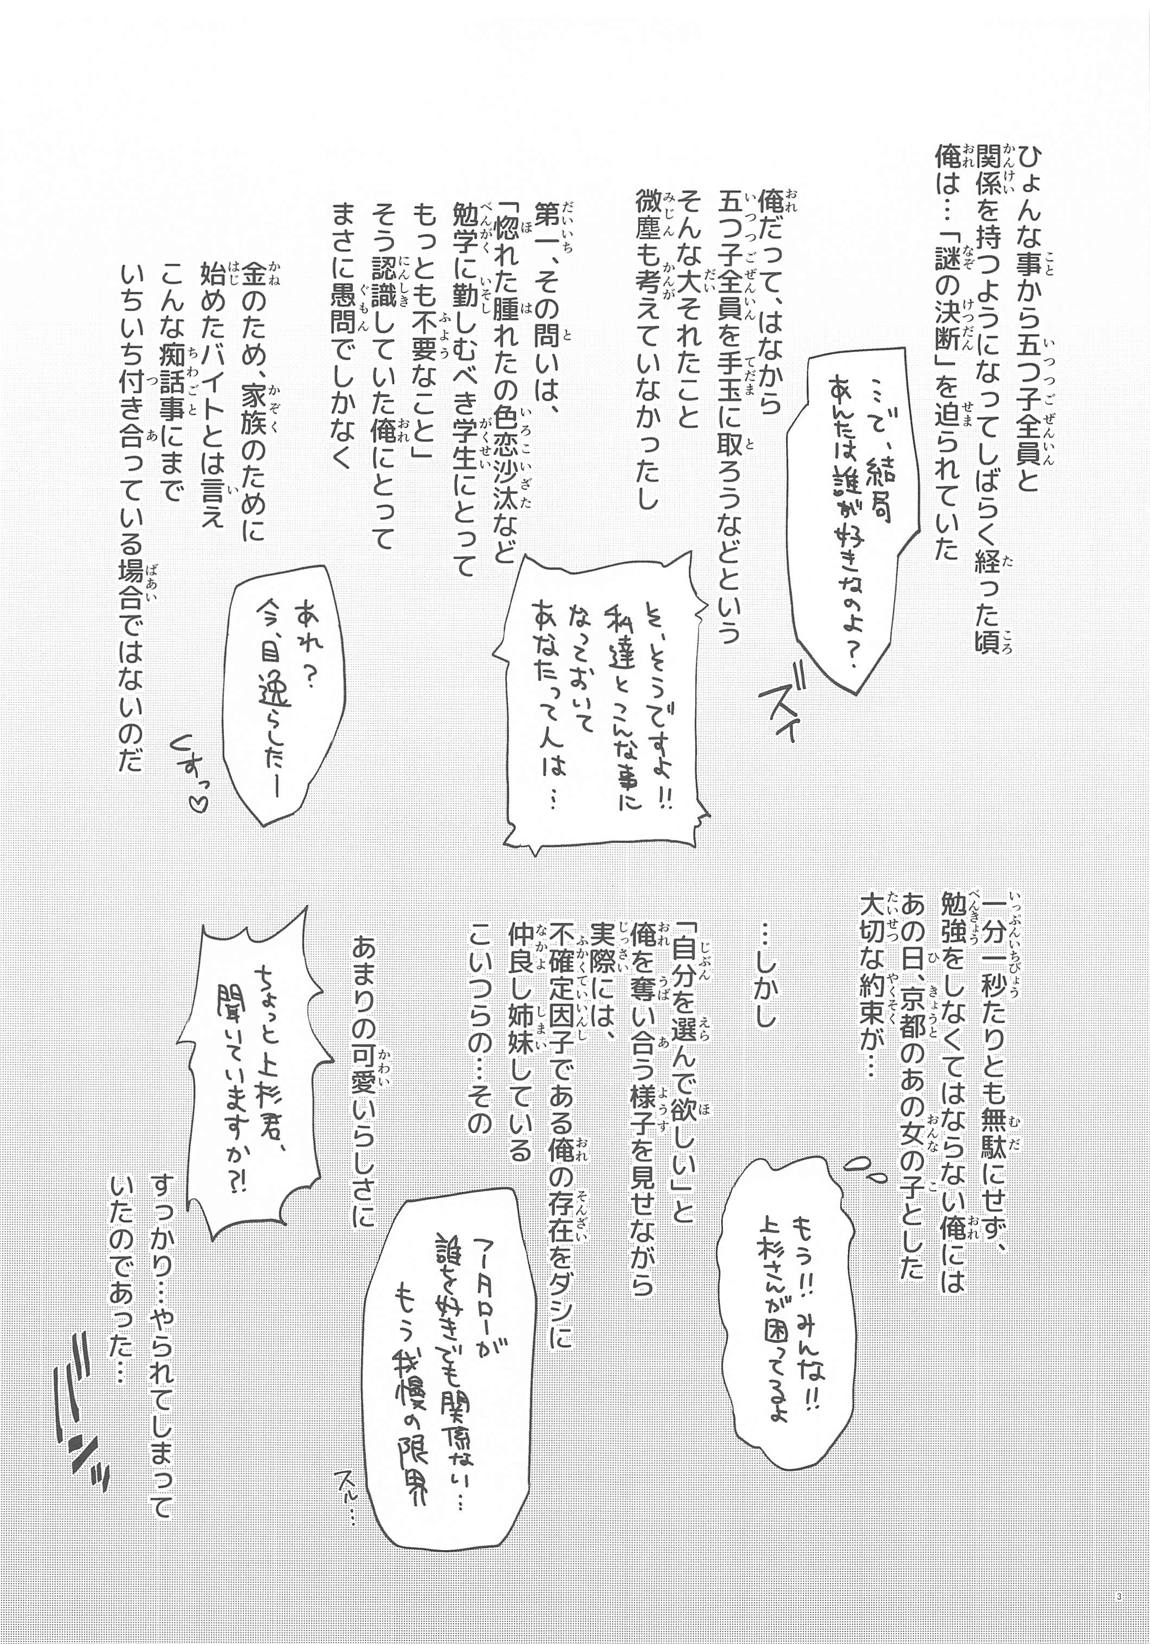 ひょんな事から五つ子全員と
関係を持つようになってしばらく経った頃
俺は…「謎の決断」を迫られていた
…で、結局
あんたは誰が好きなのよ?
ズイ
俺だって、はなから
五つ子全員を手玉に取ろうなどという
そんな大それたこと
微塵も考えていなかったし
そ、そうですよ!!
私達とこんな事に
なっておいて
あなたって人は…
第一、その問いは、
「惚れた腫れたの色恋沙汰など
勉学に勤しむべき学生にとって
もっとも不要なこと」
そう認識していた俺にとって
まさに愚問でしかなく
あれ?
今、目逸らしたー
くすっ♡
金のため、家族のために
始めたバイトとは言え
こんな痴話事にまで
いちいち付き合っている場合ではないのだ
一分一秒たりとも無駄にせず、
勉強をしなくてはならない俺には
あの日、京都のあの女の子とした
大切な約束が…
もう!!みんな!!
上杉さんが困ってるよ
…しかし
「自分を選んで欲しい」と
俺を奪い合う様子を見せながら
実際には、
不確定因子である俺の存在をダシに
仲良し姉妹している
こいつらの…その
フータローが
誰を好きでも関係ない…
もう我慢の限界
スル…
あまりの可愛いらしさに
ちょっと上杉君、
聞いていますか?!
すっかり…やられてしまって
いたのであった…
ドンッ
3